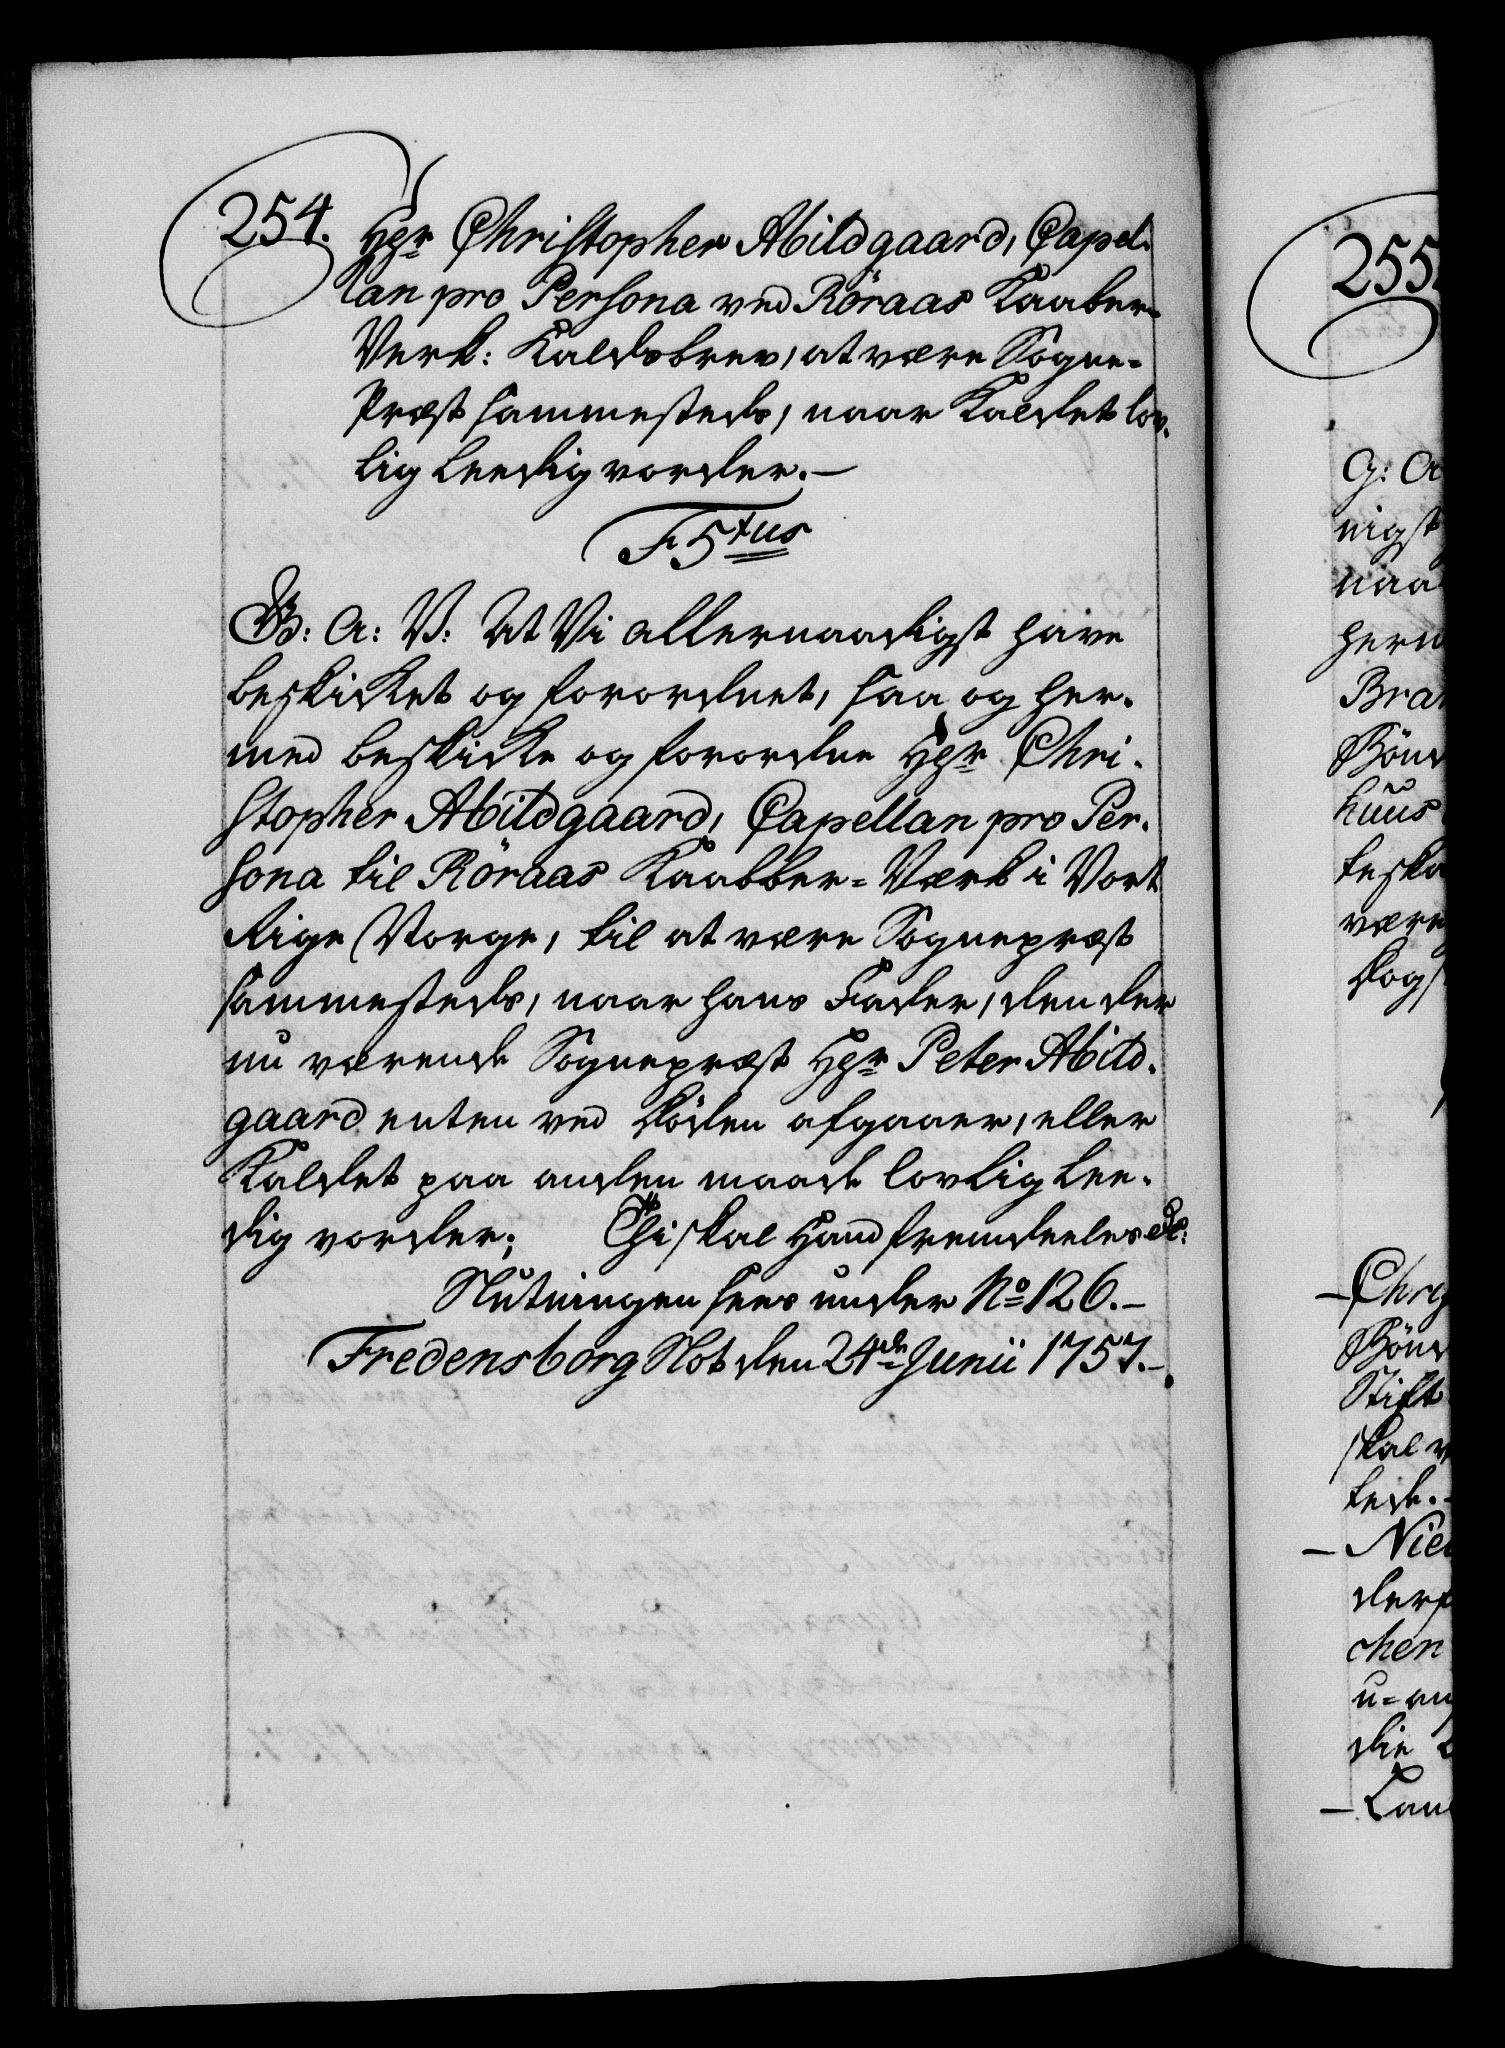 254. Hgr Christopher Abildgaard, Capel-
lan pro Persona ved Röraas Kaaber-
Verk: Kaldsbrev, at være Sogne-
Præst sammesteds, naar Kaldet lov-
lig leedig vorder. —
F 5tus
G: A: V: At Vi allernaadigst have
beskicket og forordnet, saa og her-
med beskicke og forordne Hgr Chri-
stopher Abildgaard, Capellan pro Per-
sona til Röraas Kaabber-Værk i Vort
Rige Norge, til at være Sognepræst
sammesteds, naar hans Fader, den der
nu værende Sognepræst Hgr Peter Abild-
gaard enten ved Döden afgaaer, eller
Kaldet paa anden maade lovlig lee-
dig vorder; Thi skal Hand fremdeeles etc:
Slutningen sees under No 126. —
Fredensborg Slot den 24de Junii 1757. —
255.
G: A
nigst
naa
herv
Bra
Bönd
huus
beska
være
dog
— Chri
Bönd
Stift
skal
lede. -
— Nie
ders
chen
u=an
die
— Lan